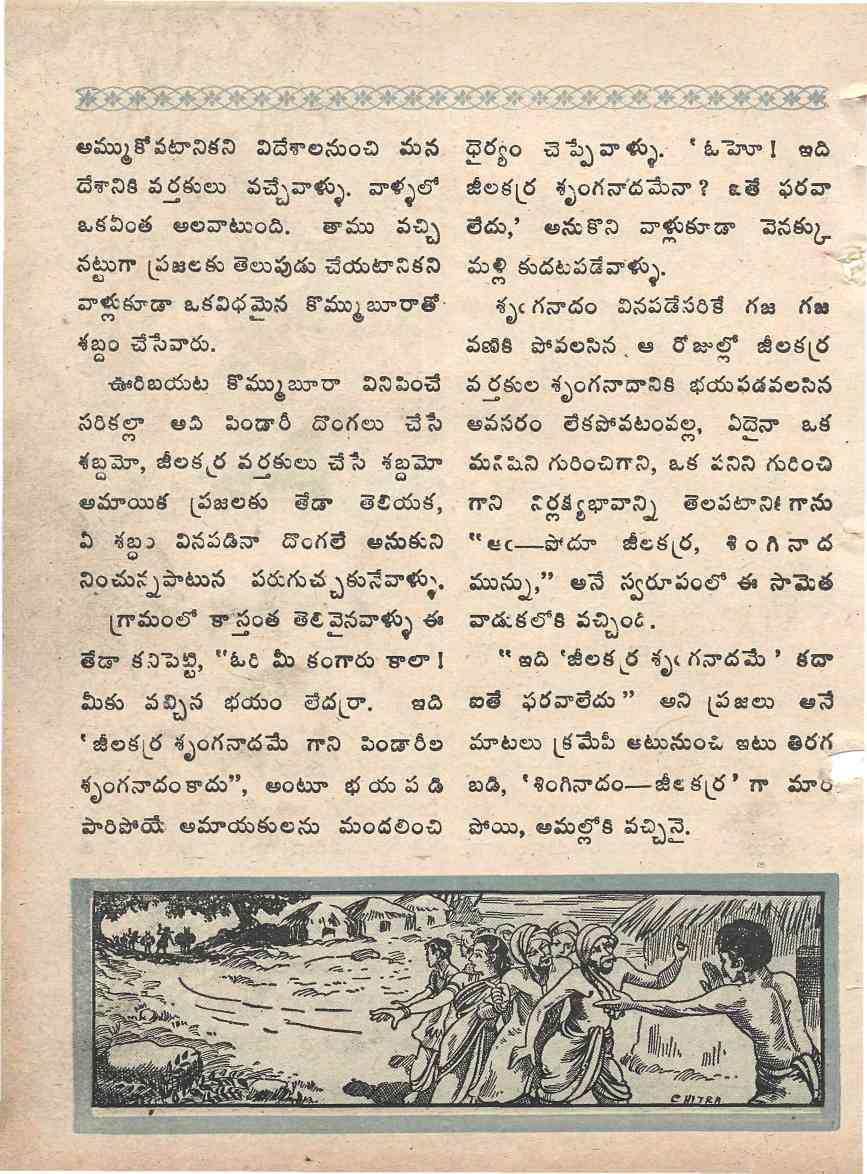 అమ్ముకోవటానికని విదేశాలనుంచి మన
దేశానికి వర్తకులు వచ్చేవాళ్ళు. వాళ్ళలో
ఒకవింత అలవాటుంది. తాము వచ్చి
నట్టుగా ప్రజలకు తెలుపుడు చేయటానికని
వాళ్లుకూడా ఒకవిధమైన కొమ్ముబూరాతో
శబ్దం చేసేవారు.
ఊరిబయట కొమ్ముబూరా వినిపించే
సరికల్లా అది పిండారీ దొంగలు చేసే
శబ్దమో, జీలకర్ర వర్తకులు చేసే శబ్దమో
అమాయిక ప్రజలకు తేడా తెలియక,
ఏ శబ్దం వినపడినా దొంగలే అనుకుని
నించున్నపాటున పరుగుచ్చకునేవాళ్ళు.
గ్రామంలో కాస్తంత తెలివైనవాళ్ళు ఈ
తేడా కనిపెట్టి, “ఓరి మీ కంగారు కాలా!
మీకు వచ్చిన భయం లేదర్రా. ఇది
‘జీలకర్ర శృంగనాదమే గాని పిండారీల
శృంగనాదంకాదు”, అంటూ భయపడి
పారిపోయే అమాయకులను మందలించి
ధైర్యం చెప్పేవాళ్ళు. ‘ఓహెూ! ఇది
జీలకర్ర శృంగనాదమేనా? ఐతే ఫరవా
లేదు,’ అనుకొని వాళ్లుకూడా వెనక్కు
మళ్లి కుదటపడేవాళ్ళు.
శృంగనాదం వినపడేసరికే గజ గజ
వణికి పోవలసిన ఆ రోజుల్లో జీలకర్ర
వర్తకుల శృంగనాదానికి భయపడవలసిన
అవసరం లేకపోవటంవల్ల, ఏదైనా ఒక
మనిషిని గురించిగాని, ఒక పనిని గురించి
గాని నిర్లక్ష్యభావాన్ని తెలపటానికిగాను
“ఆఁ—పోదూ జీలకర్ర, శింగినాద
మున్ను,” అనే స్వరూపంలో ఈ సామెత
వాడుకలోకి వచ్చింది.
“ఇది ‘జీలకర్ర శృంగనాదమే’ కదా
ఐతే ఫరవాలేదు” అని ప్రజలు అనే
మాటలు క్రమేపీ అటునుంచి ఇటు తిరగ
బడి, ‘శింగినాదం—జీలకర్ర’ గా మారి
పోయి, అమల్లోకి వచ్చినై.
CHITRA